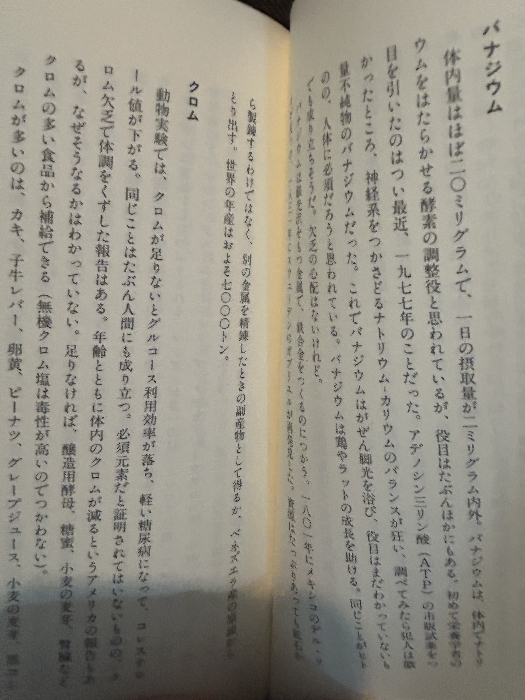 バナジウム
体内量はほぼ二〇ミリグラムで、一日の摂取量が二ミリグラム内外。バナジウムは、体内でナトリ
ウムをはたらかせる酵素の調整役と思われているが、役目はたぶんほかにもある。初めて栄養学者の
目を引いたのはつい最近、一九七七年のことだった。アデノシン三リン酸（ATP）の市販試薬をつ
かったところ、神経系をつかさどるナトリウム-カリウムのバランスが狂い、調べてみたら犯人は微
量不純物のバナジウムだった。これでバナジウムはがぜん脚光を浴び、役目はまだわかっていないも
のの、人体に必須だろうと思われている。バナジウムは鶏やラットの成長を助ける。同じことがヒト
でも成り立ちそうだ。欠乏の心配はないけれど。
バナジウムは銀光沢をもつ金属で、鉄合金をつくるのにつかう。一八〇一年にメキシコのデル・リ
ら製錬するわけではなく、別の金属を精錬したときの副産物として得るか、ベネズエラ産の原油から
とり出す。世界の年産はおよそ七〇〇〇トン。
クロム
動物実験では、クロムが足りないとグルコース利用効率が落ち、軽い糖尿病になって、コレステロ
ール値が下がる。同じことはたぶん人間にも成り立つ。必須元素だと証明されてはいないものの、ク
ロム欠乏で体調をくずした報告はある。年齢とともに体内のクロムが減るというアメリカの報告もあ
るが、なぜそうなるかはわかっていない。足りなければ、醸造用酵母、糖蜜、小麦の麦芽、腎臓など
クロムの多い食品から補給できる（無機クロム塩は毒性が高いのでつかわない）。
クロムが多いのは、カキ、子牛レバー、卵黄、ピーナツ、グレープジュース、小麦の麦芽、